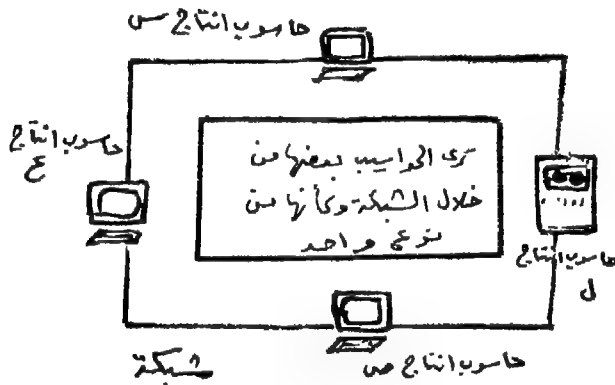 حاسوب انتاج س
حاسوب انتاج
ع
ترى الحواسيب بعضها من
خلال الشبكة وكأنها من
نوع واحد
حاسوب انتاج
ل
حاسوب انتاج ص
شبكة